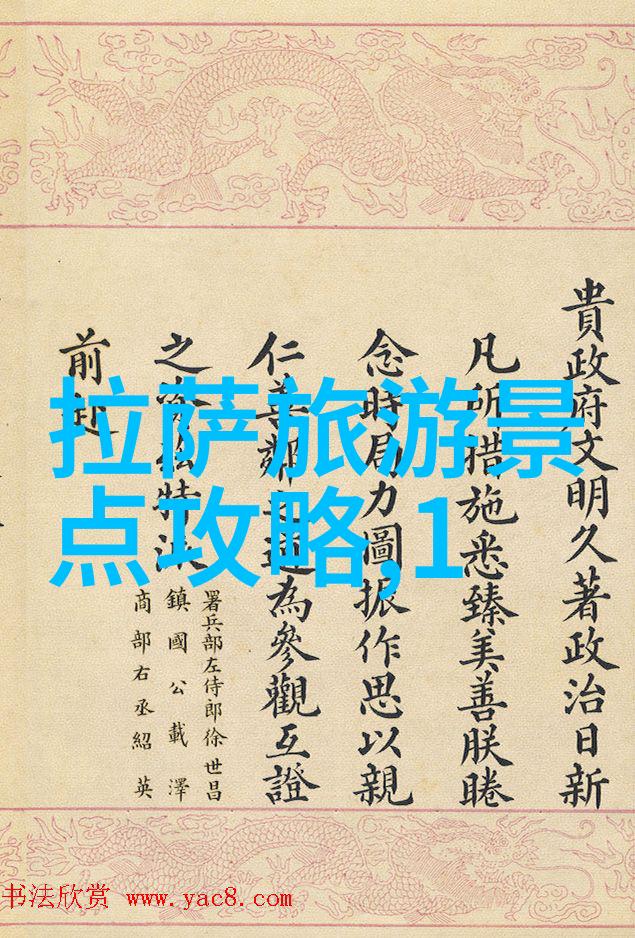 拉萨旅游景
点攻略,1
貴政府文明久著政治日新
凡所措施悉臻美善朕睠
念時局力圖振作思以親
仁善鄰之道為參觀互證
之資茲特派
署兵部左侍郎徐世昌
鎮國公載澤
商部右丞紹英
前赴
书法欣赏 www.yac8.com